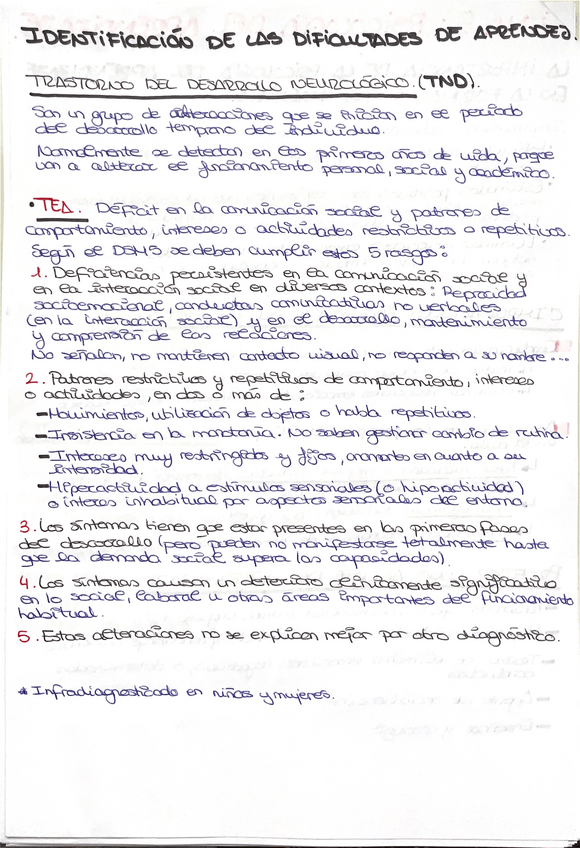 IDENTIFICACIÓN DE LAS DIFICULTADES DE APRENDEJ.
TRASTORNO DEL DESARROLLO NEUROLÓGICO. (TND).
Son un grupo de alteraciones que se inician en el periodo
del desarrollo temprano del individuo.
Normalmente se detectan en los primeros años de vida, porque
van a alterar el funcionamiento personal, social y académico.
• TEA. Déficit en la comunicación social y patrones de
comportamiento, intereses o actividades restrictivos o repetitivos.
Según el DSM5 se deben cumplir estos 5 rasgos:
1. Deficiencias persistentes en la comunicación social y
en la interacción social en diversos contextos: Reprocidad
socioemocional, conductas comunicativas no verbales
(en la interacción social) y en el desarrollo, mantenimiento
y comprensión de las relaciones.
No señalan, no mantienen contacto visual, no responden a su nombre...
2. Patrones restrictivos y repetitivos de comportamiento, intereses
o actividades, en dos o más de:
- Movimientos, utilización de objetos o habla repetitivos.
- Insistencia en la monotonía. No saben gestionar cambio de rutina.
- Intereses muy restringidos y fijos, anormales en cuanto a su
intensidad.
- Hiperactividad a estímulos sensoriales (o hipoactividad)
o interes inhabitual por aspectos sensoriales del entorno.
3. Los síntomas tienen que estar presentes en las primeras fases
del desarrollo (pero pueden no manifestarse totalmente hasta
que la demanda social supera las capacidades).
4. Los síntomas causan un deterioro clínicamente significativo
en lo social, laboral u otras áreas importantes del funcionamiento
habitual.
5. Estas alteraciones no se explican mejor por otro diagnóstico.
* Infradiagnosticado en niñas y mujeres.